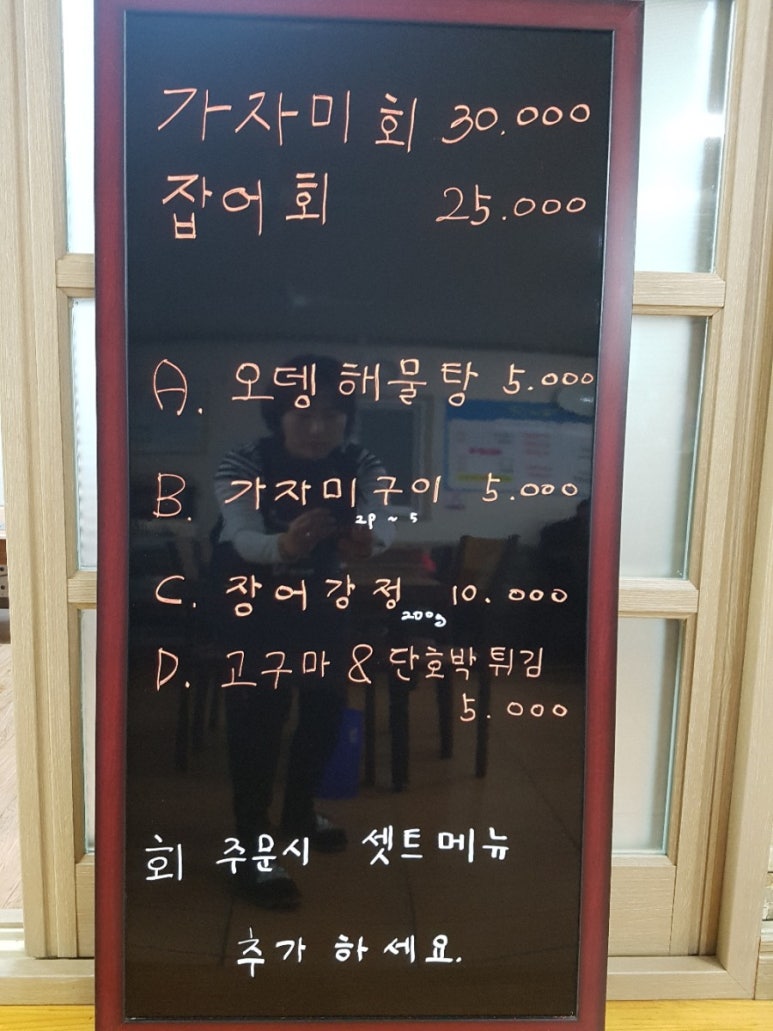 가자미회 30.000
잡어회 25.000
A. 오뎅해물탕 5.000
B. 가자미구이 5.000
2p ~ 5
C. 장어강정 10.000
200g
D. 고구마 & 단호박튀김
5.000
회 주문시 셋트메뉴
추가 하세요.